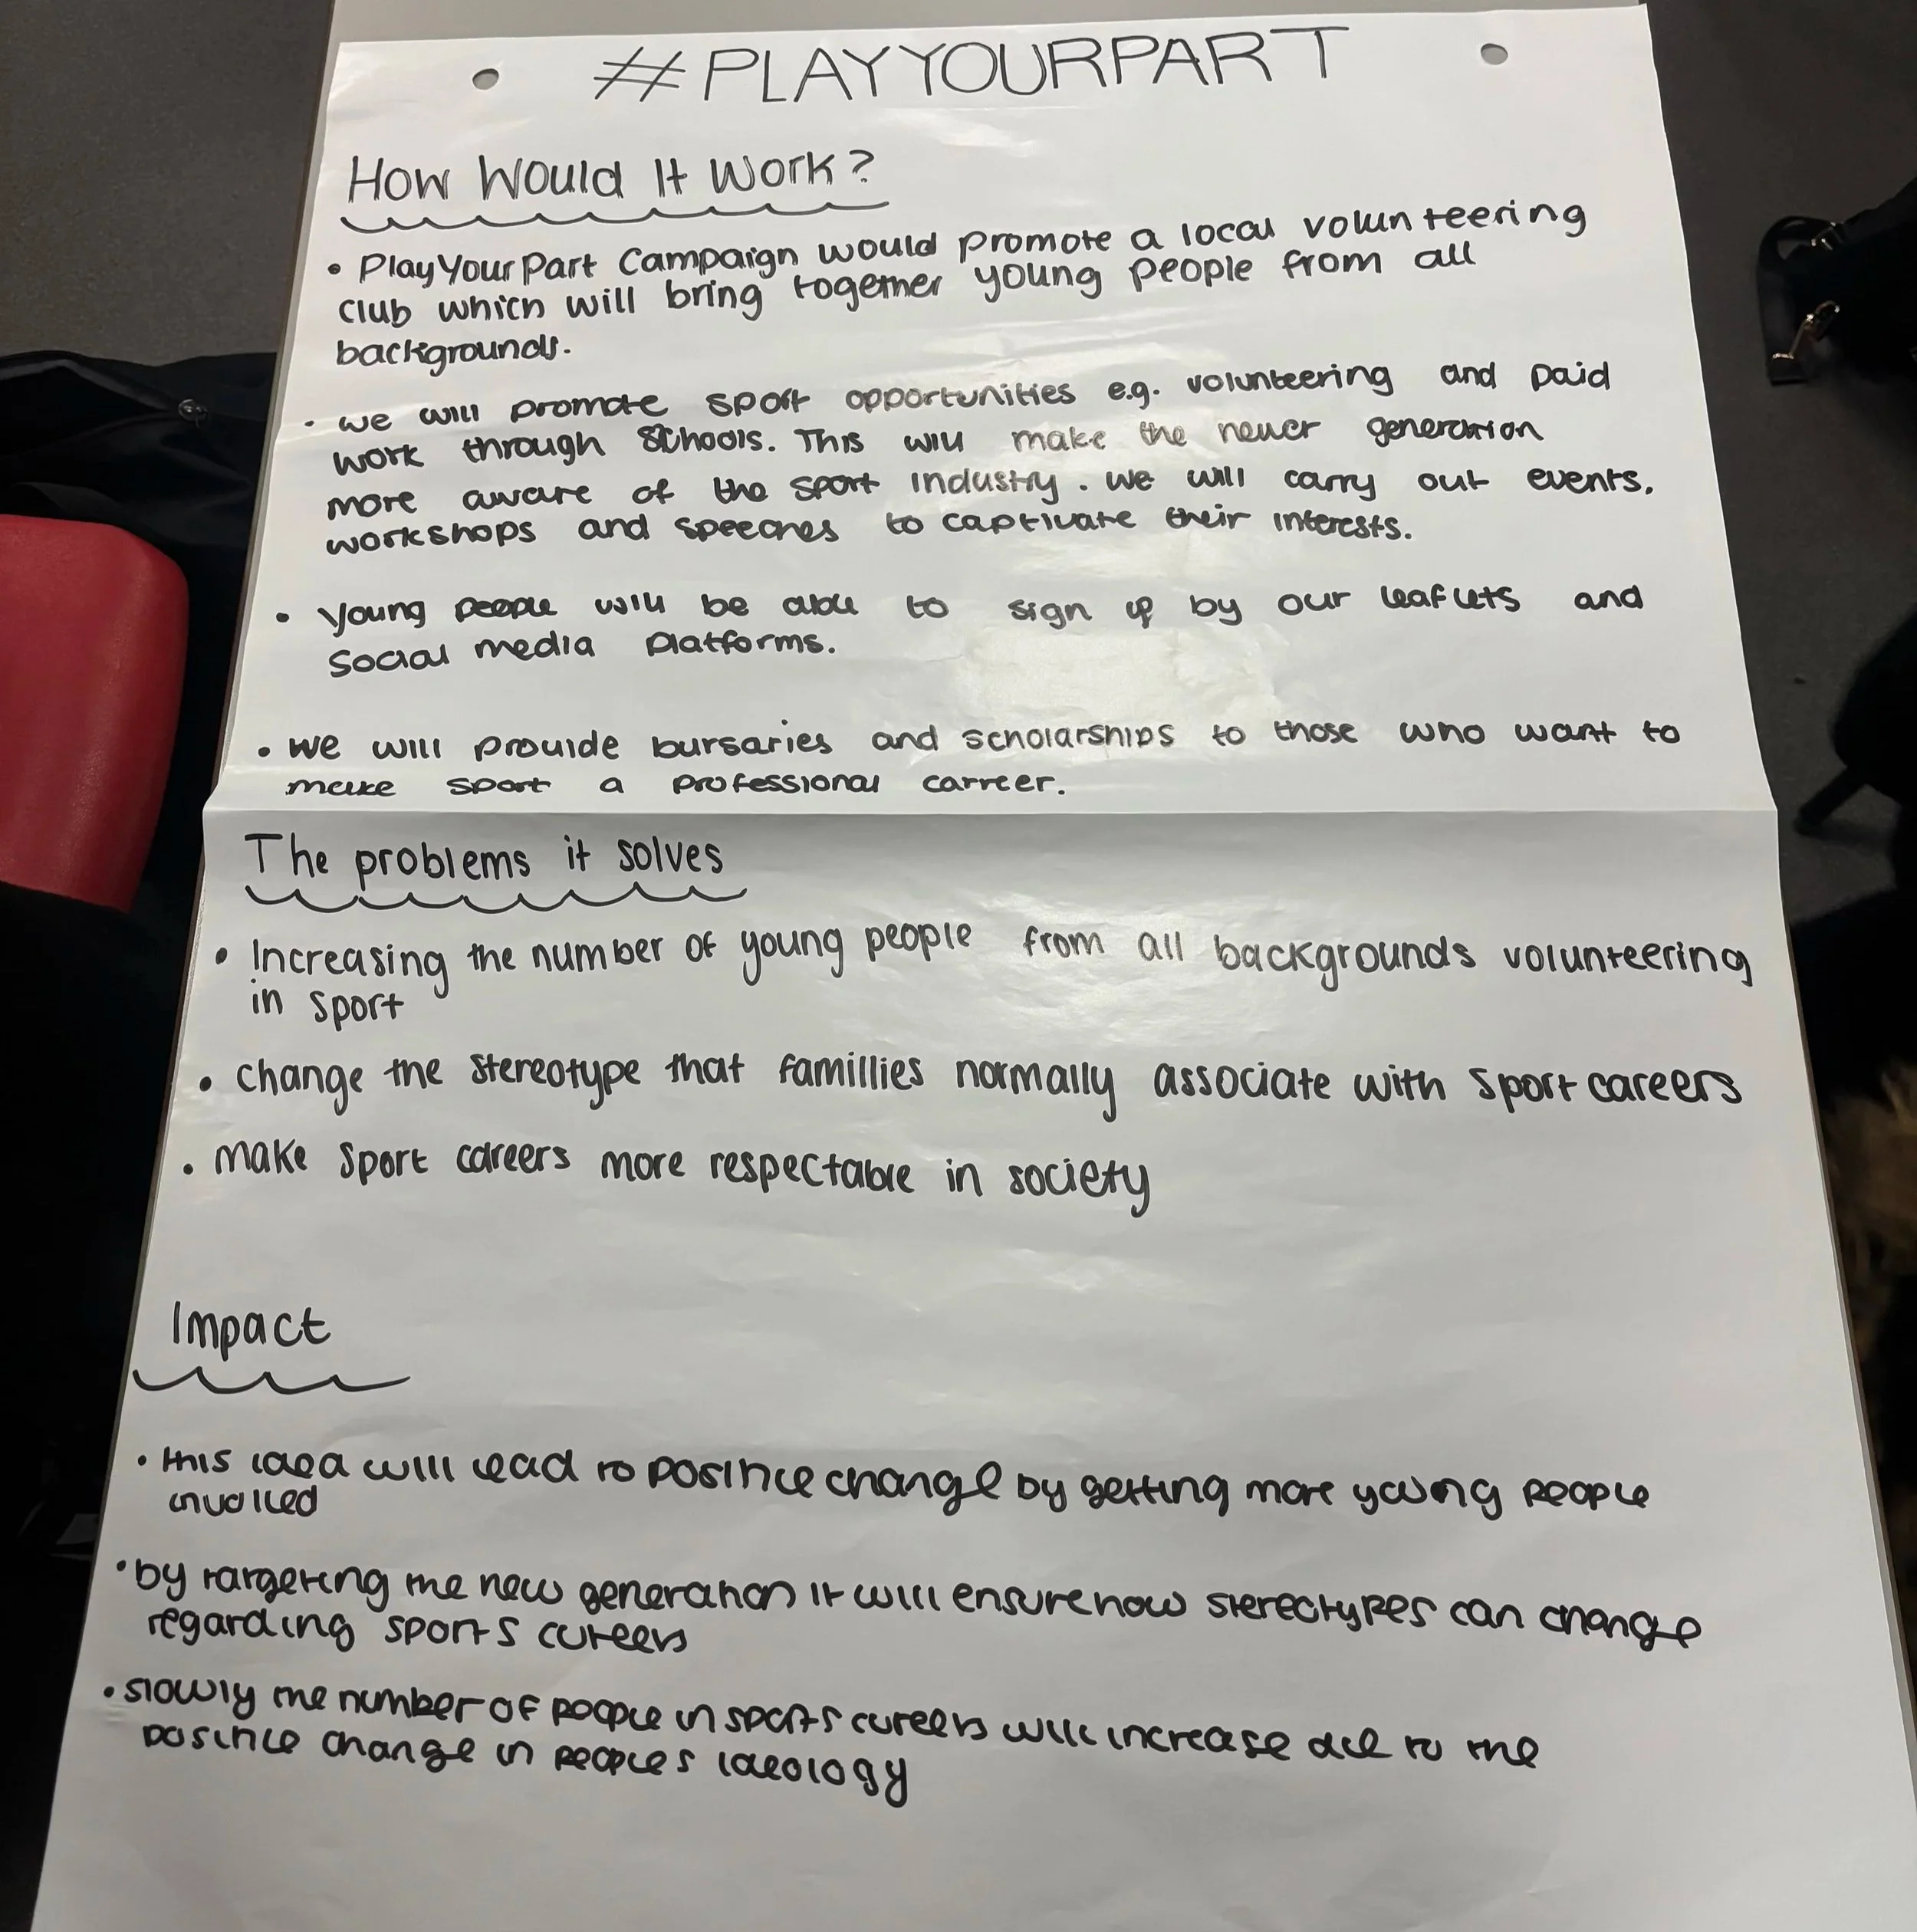 #PLAYYOURPART
How Would It Work?
• PlayYourPart Campaign would promote a local volunteering
club which will bring together young people from all
backgrounds.
• we will promote sport opportunities e.g. volunteering and paid
work through schools. This will make the newer generation
more aware of the sport industry. we will carry out events,
workshops and speeches to captivate their interests.
• Young people will be able to sign up by our leaflets and
social media platforms.
• we will provide bursaries and scholarships to those who want to
make sport a professional carreer.
The problems it solves
• Increasing the number of young people from all backgrounds volunteering
in sport
• change the stereotype that famillies normally associate with sport careers
• make sport careers more respectable in society
Impact
• this idea will lead to positive change by getting more young people
involved
• by targeting the new generation it will ensure how stereotypes can change
regarding sports careers
• slowly the number of people in sports careers will increase due to the
positive change in peoples ideology